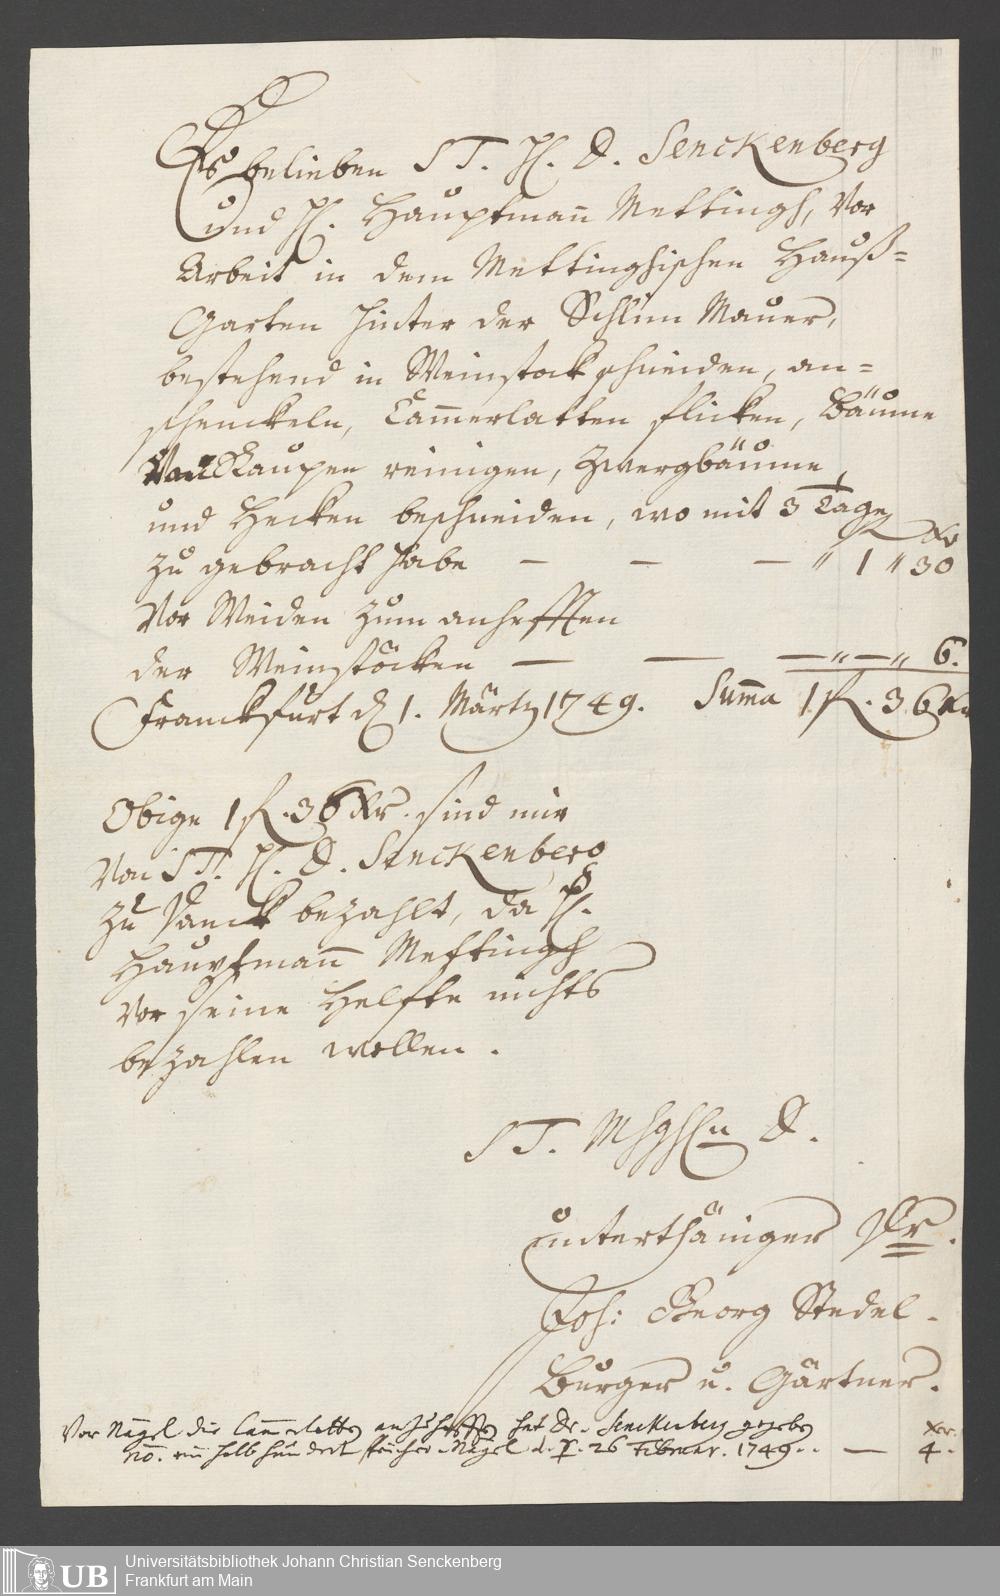 Es belieben S T. H. D. Senckenberg
und H. Hauptmañ Mettingh, Vor
Arbeit in dem Mettinghischen Hauß=
Garten hinter der Schlim Mauer,
bestehend in Weinstock schneiden, an=
schenckeln, Cam̃erlatten flicken, Bäume
Von Raupen reinigen, Zwergbäume,
und Hecken beschneiden, wo mit 3 Tage
fl Xr
zu gebracht habe — — — " 1 " 30
Vor Weiden zum anhefften
der Weinstöcken — — — " — " 6.
Franckfurt d 1. Märtz 1749. Sum̃a 1 fl. 36 Xr
Obige 1 fl. 36 Xr. sind mir
Von S T. H. D. Senckenberg
zu Danck bezahlt, da H.
Hauptmañ Mettingh
Vor seine Helfte nichts
bezahlen wollen.
S T. D.
unterthäniger Dr.
Joh: Georg Stedel
Burger u. Gärtner.
Vor Nägel die Cam̃erlatten anzuhefften hat Dr. Senckenberg gegeben Xr.
no. ein halb hundert Nägel d. 26 Februar. 1749. — 4.
UB
Universitätsbibliothek Johann Christian Senckenberg
Frankfurt am Main